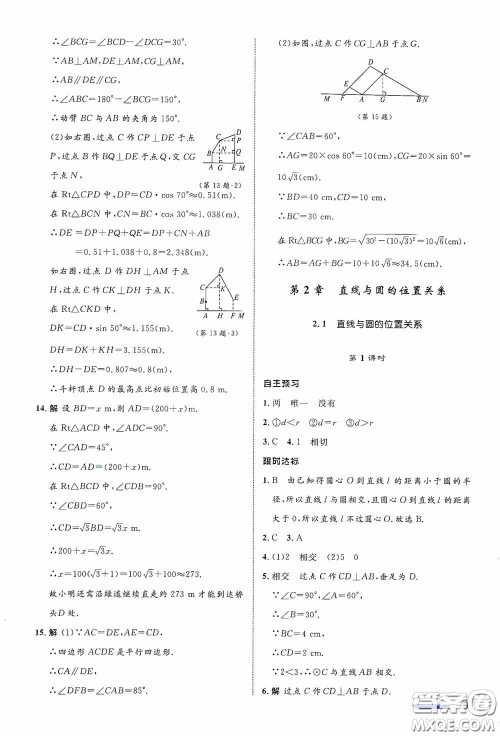 ∴∠BCG=∠BCD-∠DCG=30°.
∵AB⊥AM,DE⊥AM,CG⊥AM,
∴AB∥DE∥CG,
∴∠ABC=180°-150°=30°.
∴动臂BC与AB的夹角为150°.
(2)如右图,过点C作CP⊥DE于点
P,过点B作BQ⊥DE于点Q,交CG
于点N,
在Rt△CPD中,DP=CD·cos 70°≈0.51(m).
(第13题-2)
在Rt△BCN中,CN=BC·cos 30°≈1.038(m).
∴DE=DP+PQ+QE=DP+CN+AB
=0.51+1.038+0.8=2.348(m).
如右图,过点D作DH⊥AM于点
H,过点C作CK⊥DH于点K.
在Rt△CKD中,
DK=CD·sin 50°≈1.155(m).
(第13题-3)
DH=DK+KH=3.155(m).
∴DH-DE=0.807≈0.8(m).
∴斗杆顶点D的最高点比初始位置高0.8 m.
14.解 设BD=x m,则AD=(200+x)m.
在Rt△ACD中,∠ADC=90°.
∵∠CAD=45°,
∴CD=AD=(200+x)m.
在Rt△BCD中,∠CDB=90°.
∵∠CBD=60°,
∴CD=√3BD=√3x m.
∴200+x=√3x.
∴x=100(√3+1)=100√3+100≈273.
故小明还需沿绿道继续直走约273 m才能到达桥
头D处.
15.解 (1)∵AC=DE,AE=CD,
∴四边形ACDE是平行四边形.
∴CA∥DE.
∴∠DFB=∠CAB=85°.
(2)如图,过点C作CG⊥AB于点G.
(第15题)
∵∠CAB=60°,
∴AG=20×cos 60°=10(cm),CG=20×sin 60°=
10√3(cm).
∵BD=40 cm,CD=10 cm,
∴BC=30 cm.
在Rt△BCG中,BG=√30²-(10√3)²=10√6(cm).
∴AB=AG+BG=10+10√6≈34.5(cm).
第2章 直线与圆的位置关系
2.1 直线与圆的位置关系
第1课时
自主预习
1.两 唯一 没有
2.①d<r ②d=r ③d>r
3.C 4.1 相切
限时达标
1.B 由已知得圆心O到直线l的距离小于圆的半
径,所以直线l与圆相交.圆心O到直线l的距离
大于0,所以直线l不经过点O.故选B.
2.C 3.A
4.(1)2 相交 (2)5 0
5.相交 过点C作CD⊥AB,垂足为D.
∵∠C=90°,∠A=60°,
∴∠B=30°.
∵BC=4 cm,
∴CD=2 cm.
∵2<3,∴⊙C与直线AB相交.
6.解 过点C作CD⊥AB于点D.